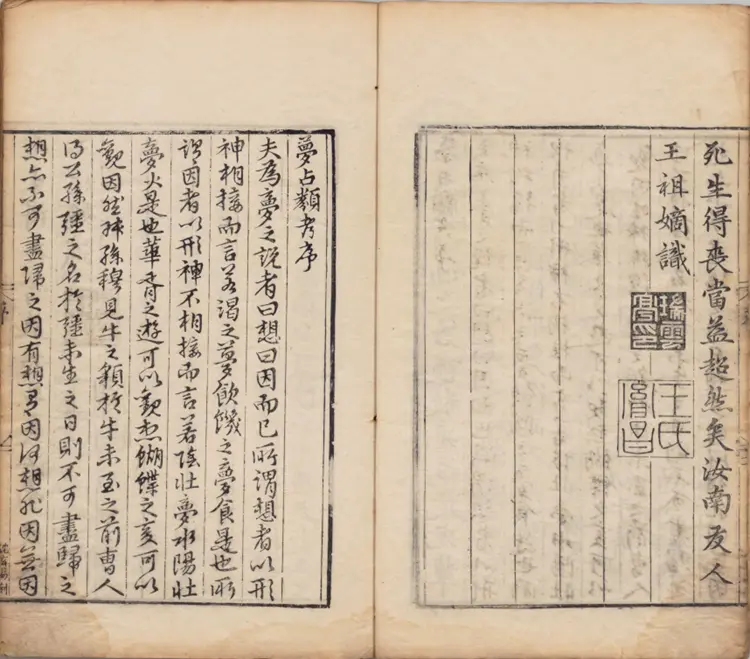 死生得喪當益超然矣汝南友人
王祖嫡識
瑞雲
王氏
胤昌
夢占類考序
夫為夢之說者曰想曰因而已所謂想者以形
神相接而言若渴之夢飲饑之夢食是也所
謂因者以形神不相接而言若陰壯夢水陽壯
夢火是也華胥之遊可以觀想蝴蝶之變可以
觀因然叔孫穆見牛之貌於牛未至之前曹人
得公孫彊之名於彊未生之日則不可盡歸之
想亦不可盡歸之因有想有因何想非因無因
序